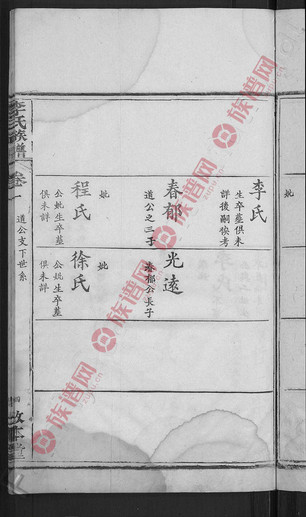 妣
李氏
生卒墓俱未
詳後嗣俟考
春郁
道公之三子
妣
程氏
公妣生卒墓
俱未詳
光遠
春郁公長子
妣
徐氏
公妣生卒墓
俱未詳
李氏族譜
卷一
道公支下世系
四
敦本堂
族谱网
族谱网
族谱网
族谱网